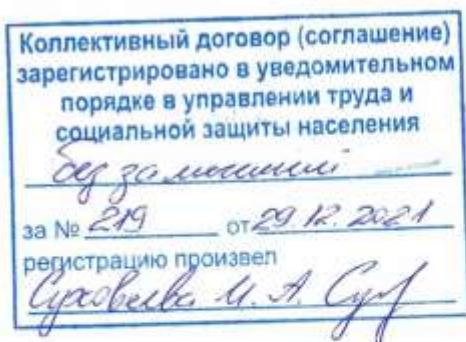 Коллективный договор (соглашение)
зарегистрировано в уведомительном
порядке в управлении труда и
социальной защиты населения
без замечаний
за № 219 от 29.12.2021
регистрацию произвел
И. А.